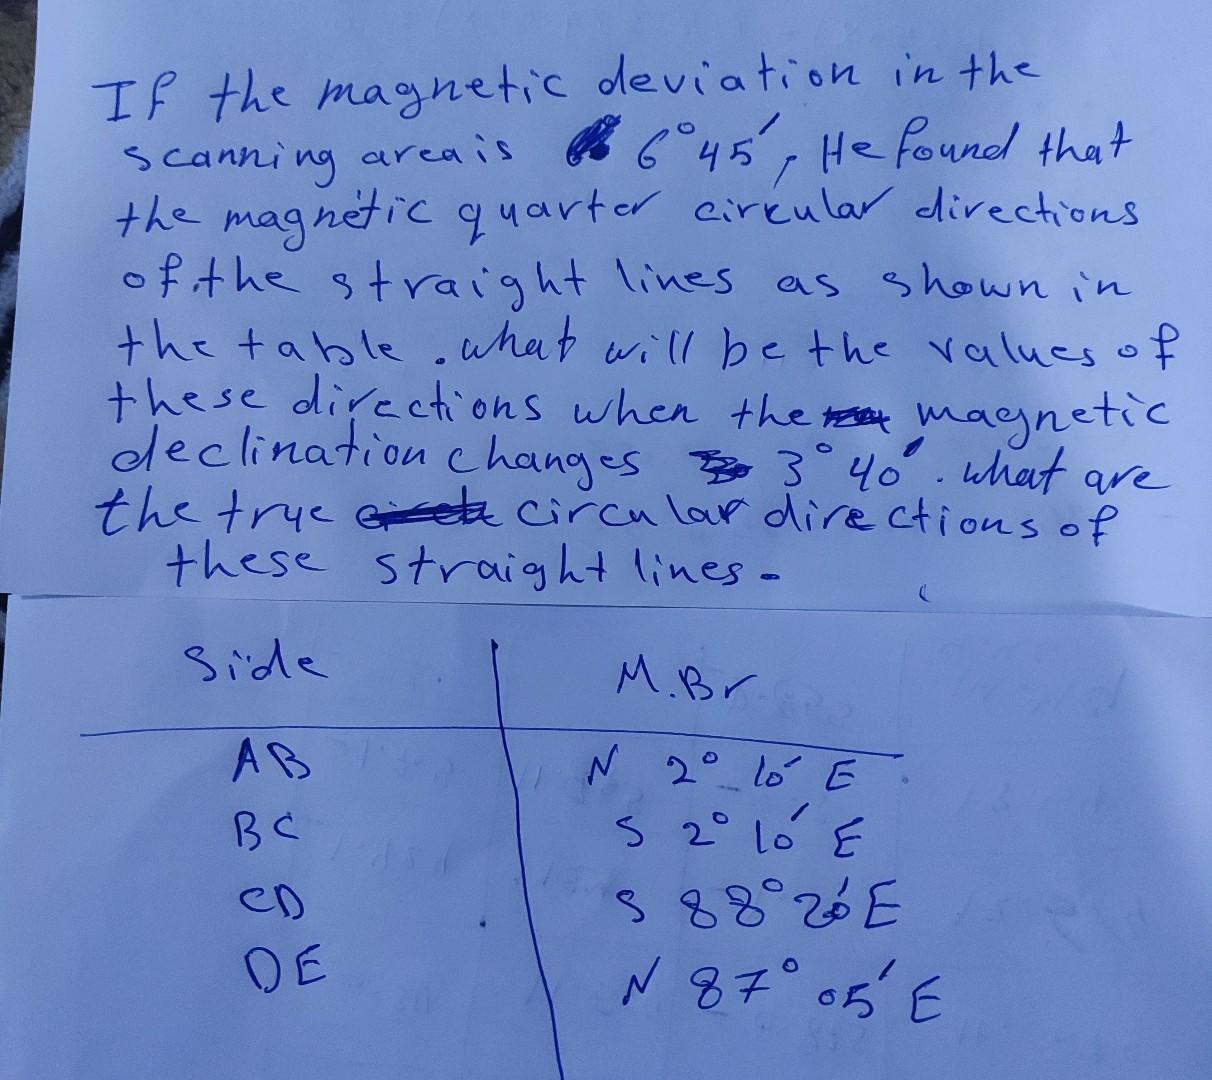 If the magnetic deviation in the
scanning area is 6°45', He found that
the magnetic quarter circular directions
of the straight lines as shown in
the table. what will be the values of
these directions when the magnetic
declination changes 3°40'. what are
the true circular directions of
these straight lines.
Side M.Br
AB N 2° 10' E
BC S 2° 10' E
CD S 88° 20' E
DE N 87° 05' E